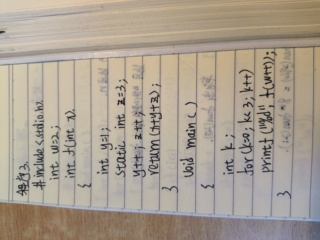 编程3.
#include<stdio.h>
int w=2;
int f(int x)
{
int y=1;
static int z=3;
y++; z++;
return(x+y+z);
}
void main()
{
int k;
for(k=0;k<3;k++)
printf("%d",f(w++));
}